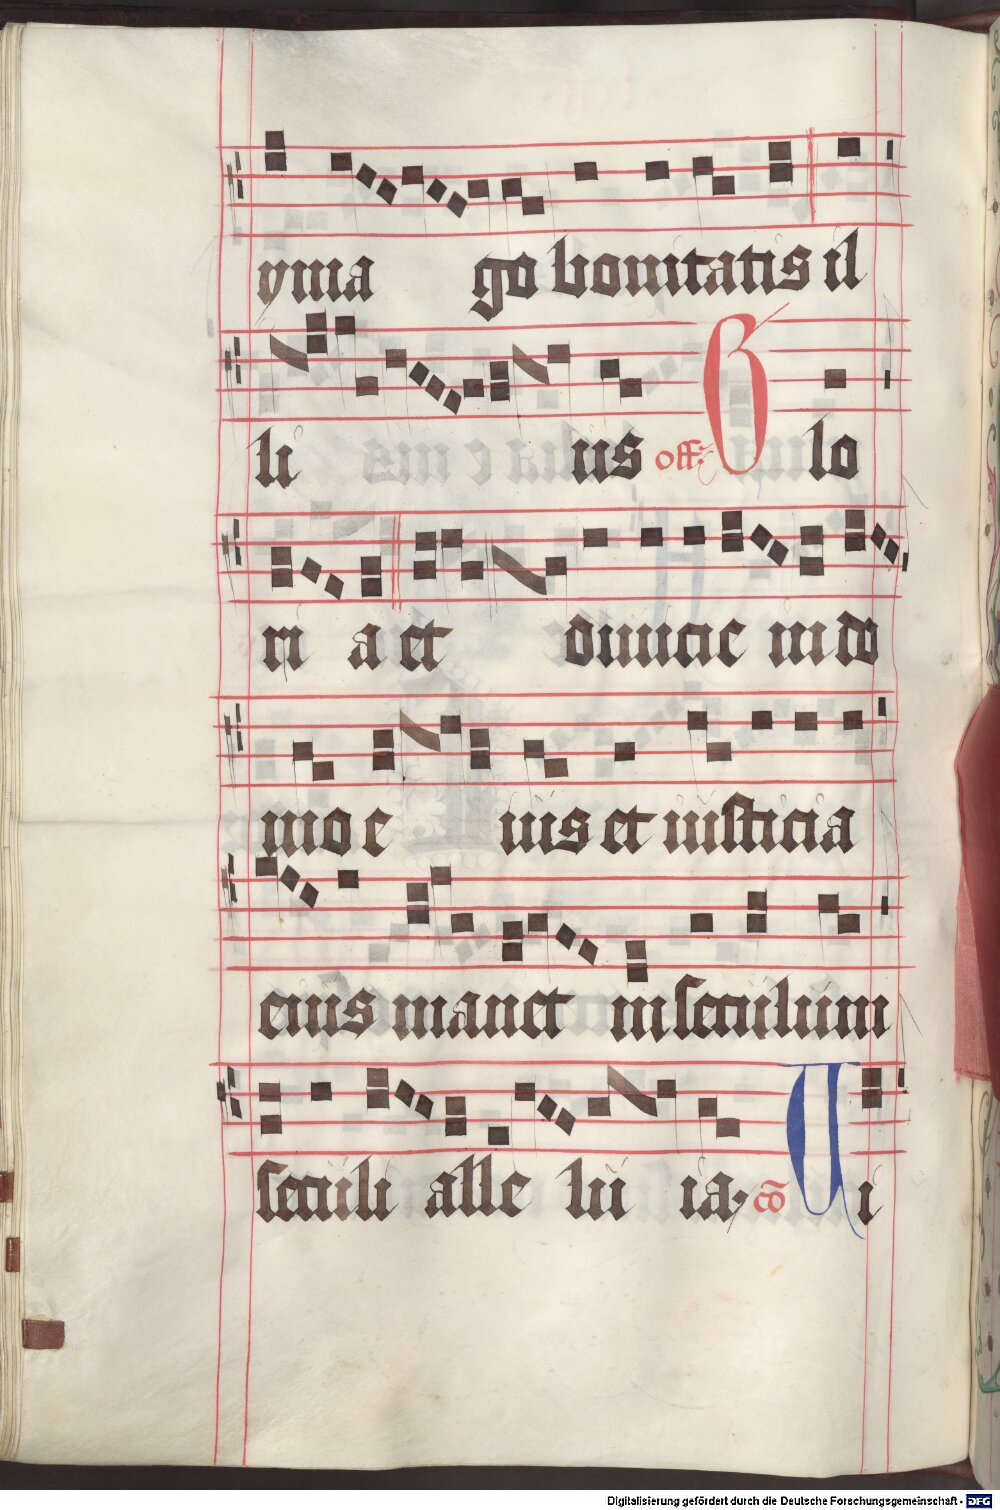 ymago bonitatis il
lius off. Glo
ria et diuitie in do
mo eius et iusticia
eius manet in seculum
seculi alleluia. co Ui
Digitalisierung gefördert durch die Deutsche Forschungsgemeinschaft - DFG